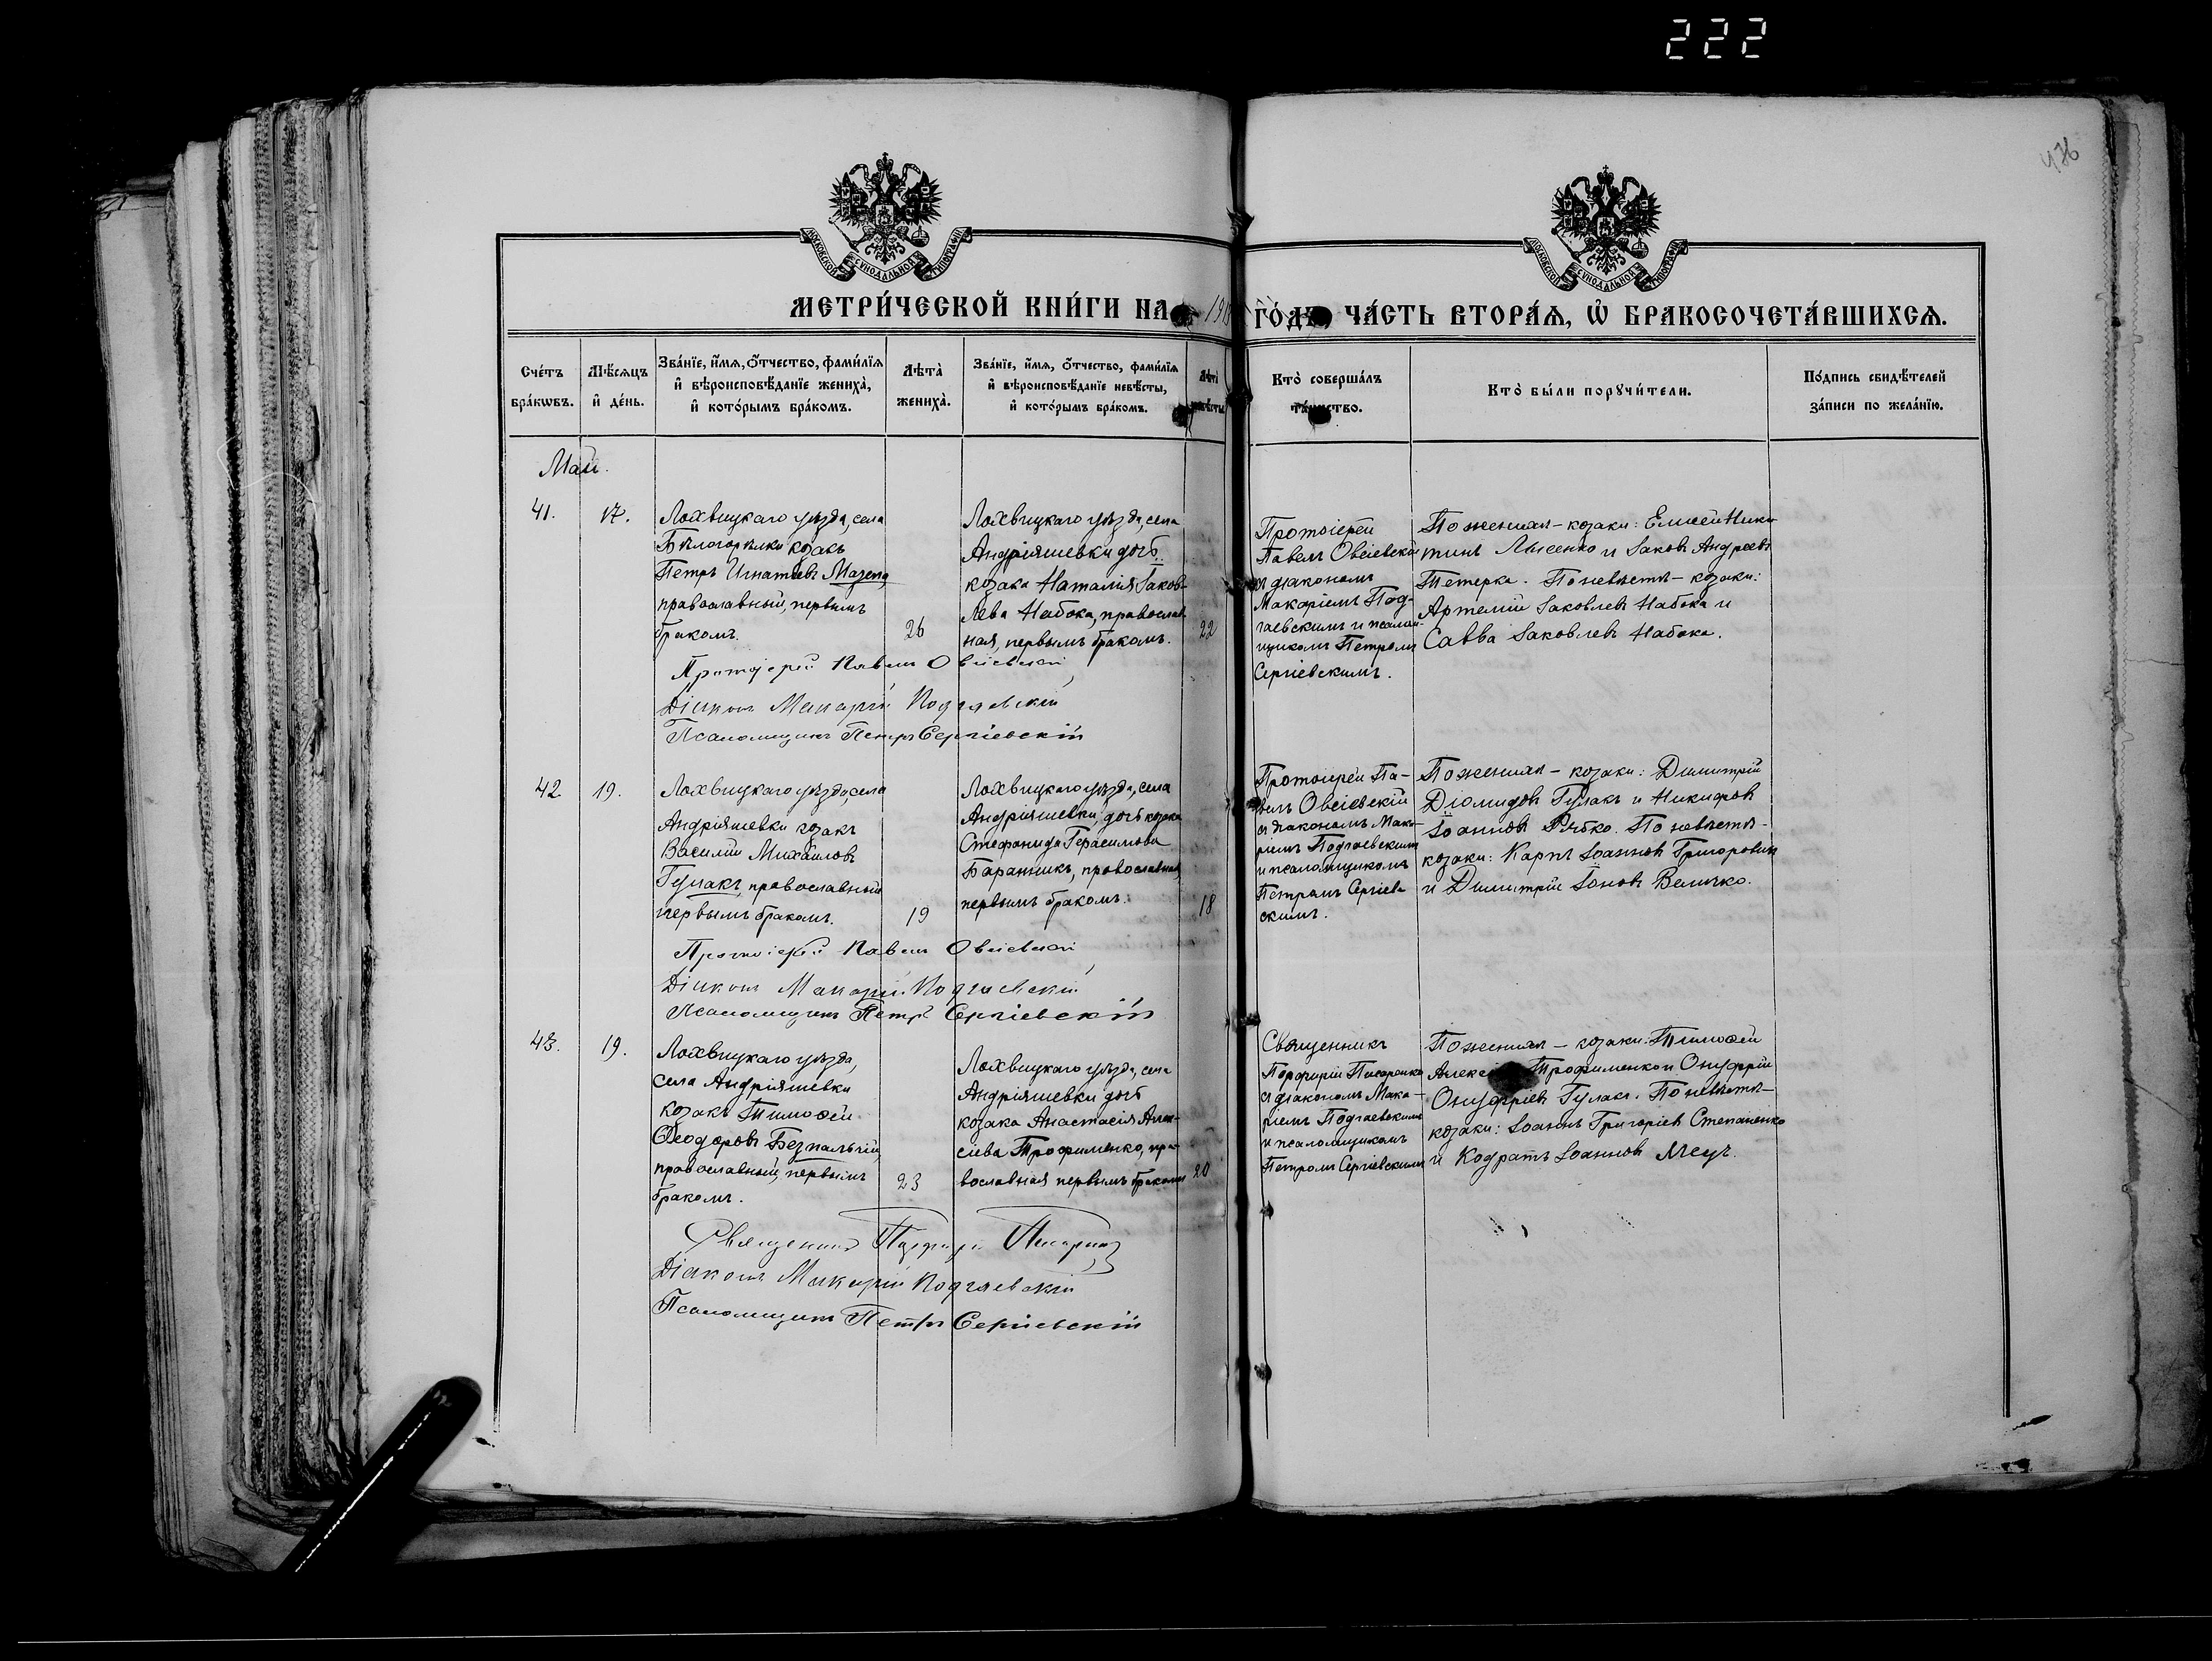 222
436
МОСКОВСКОЙ СѴНОДАЛЬНОЙ ТИПОГРАФІИ
МОСКОВСКОЙ СѴНОДАЛЬНОЙ ТИПОГРАФІИ
МЕТРИ́ЧЕСКОЙ КНИ́ГИ НА 191
ГО́ДЪ, ЧА́СТЬ ВТОРА́Ѧ, Ѽ БРАКОСОЧЕТА́ВШИХСѦ.
Сче́тъ бра́кѡвъ.
Мѣ́сѧцъ и҆ де́нь.
Зва́нїе, и҆́мѧ, ѻ҆́тчество, фами́лїѧ
и҆ вѣроисповѣ́данїе жениха̀,
и҆ кото́рымъ бра́комъ.
Лѣта̀ жениха̀.
Зва́нїе, и҆́мѧ, ѻ҆́тчество, фами́лїѧ
и҆ вѣроисповѣ́данїе невѣ́сты,
и҆ кото́рымъ бра́комъ.
Лѣта̀ невѣ́сты
Кто̀ соверша́лъ
та́инство.
Кто̀ бы́ли порꙋчи́тели.
По́дпись свидѣ́телей
за́писи по жела́нїю.
Май.
41.
17.
Лохвицкаго уѣзда, села
Бѣлогорѣлки козакъ
Петръ Игнатіевъ Мазепа,
православный, первымъ
бракомъ.
26
Лохвицкаго уѣзда, села
Андріяшевки дочь
козака Наталія Іаков-
лева Набока, православ-
ная, первымъ бракомъ.
22
Протоіерей
Павелъ Овсіевскій
съ діакономъ
Макаріемъ Под-
гаевскимъ и псалом-
щикомъ Петромъ
Сергіевскимъ.
По женихѣ – козаки: Елисей Ники-
тинъ Лысенко и Іаковъ Андреевъ
Тетерка. По невѣстѣ – козаки:
Артемій Іаковлевъ Набока и
Савва Іаковлевъ Набока.
Протоіерей Павелъ Овсіевскій
Діаконъ Макарій Подгаевскій
Псаломщикъ Петръ Сергіевскій
42
19.
Лохвицкаго уѣзда, села
Андріяшевки козакъ
Василій Михаиловъ
Гулакъ, православный
первымъ бракомъ.
19
Лохвицкаго уѣзда, села
Андріяшевки, дочь козака
Стефанида Герасимова
Баранникъ, православная,
первымъ бракомъ.
18
Протоіерей Па-
велъ Овсіевскій
съ діакономъ Мака-
ріемъ Подгаевскимъ
и псаломщикомъ
Петромъ Сергіев-
скимъ.
По женихѣ – козаки: Димитрій
Діомидовъ Гулакъ и Никифоръ
Іоанновъ Рябко. По невѣстѣ –
козаки: Карпъ Іоанновъ Григоровичъ
и Димитрій Іоновъ Величко.
Протоіерей Павелъ Овсіевскій
Діаконъ Макарій Подгаевскій
Псаломщикъ Петръ Сергіевскій
43.
19.
Лохвицкаго уѣзда,
села Андріяшевки
козакъ Тимоѳей
Ѳеодоровъ Безпалый,
православный, первымъ
бракомъ.
23
Лохвицкаго уѣзда, села
Андріяшевки дочь
козака Анастасія Алек-
сіева Трофименко, пра-
вославная первымъ бракомъ
20
Священникъ
Порфирій Писаренко
съ діакономъ Мака-
ріемъ Подгаевскимъ
и псаломщикомъ
Петромъ Сергіевскимъ
По женихѣ – козаки: Тимоѳей
Трофименко и Онуфрій
Онуфріевъ Гулакъ. По невѣстѣ –
козаки: Іоаннъ Григоріевъ Степаненко
и Кодратъ Іоанновъ Месуъ.
Священникъ Порфирій
Діаконъ Макарій Подгаевскій
Псаломщикъ Петръ Сергіевскій